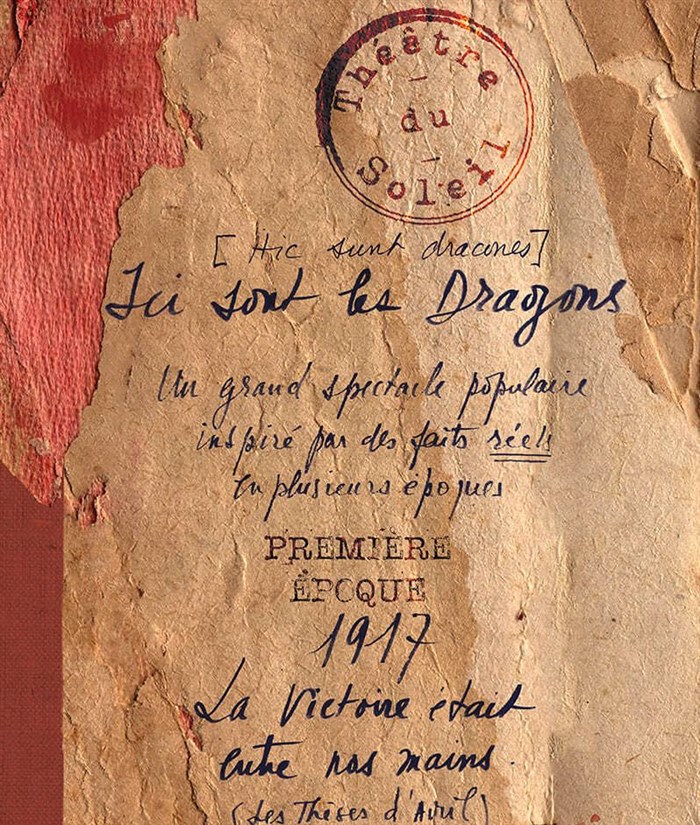 Théâtre
du
Soleil
[Hic sunt dracones]
Ici sont les Dragons
Un grand spectacle populaire
inspiré par des faits réels
en plusieurs époques
PREMIÈRE
ÉPOQUE
1917
La Victoire était
entre nos mains.
(Les Thèses d'Avril)